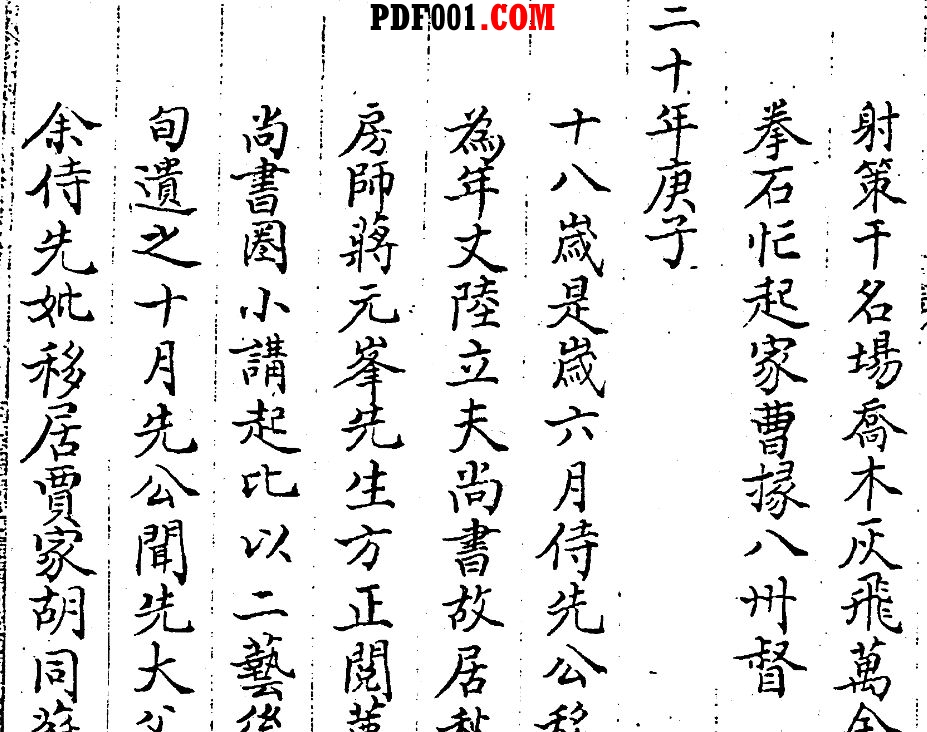 PDF001.COM
射策干名場喬木灰飛萬
拳石忙起家曹掾八州督
二十年庚子
十八歲是歲六月侍先公移
為年丈陸立夫尚書故居
房師蔣元峯先生方正閱
尚書圈小講起比以二藝
旬遺之十月先公聞先大父
余侍先妣移居賈家胡同